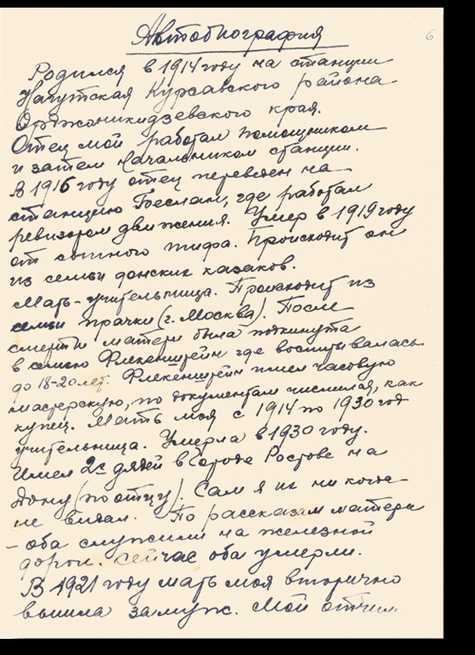 Автобиография
6
Родился в 1914 году на станции
Нагутская Курсавского района
Орджоникидзевского края.
Отец мой работал помощником
и затем начальником станции.
В 1916 году отец переведен на
станцию Беслан, где работал
ревизором движения. Умер в 1919 году
от сыпного тифа. Происходит он
из семьи донских казаков.
Мать-учительница. Происходит из
семьи прачки (г. Москва). После
смерти матери была подкинута
в семью Флекенштейн где воспитывалась
до 18-20 лет. Флекенштейн имел часовую
мастерскую, по документам числился, как
купец. Мать моя с 1914 по 1930 год
учительница. Умерла в 1930 году.
Имел 2х дядей в городе Ростове на
Дону (по отцу). Сам я их никогда
не видал. По рассказам матери
- оба служили на железной
дороге. Сейчас оба умерли.
В 1921 году мать моя вторично
вышла замуж. Мой отчим